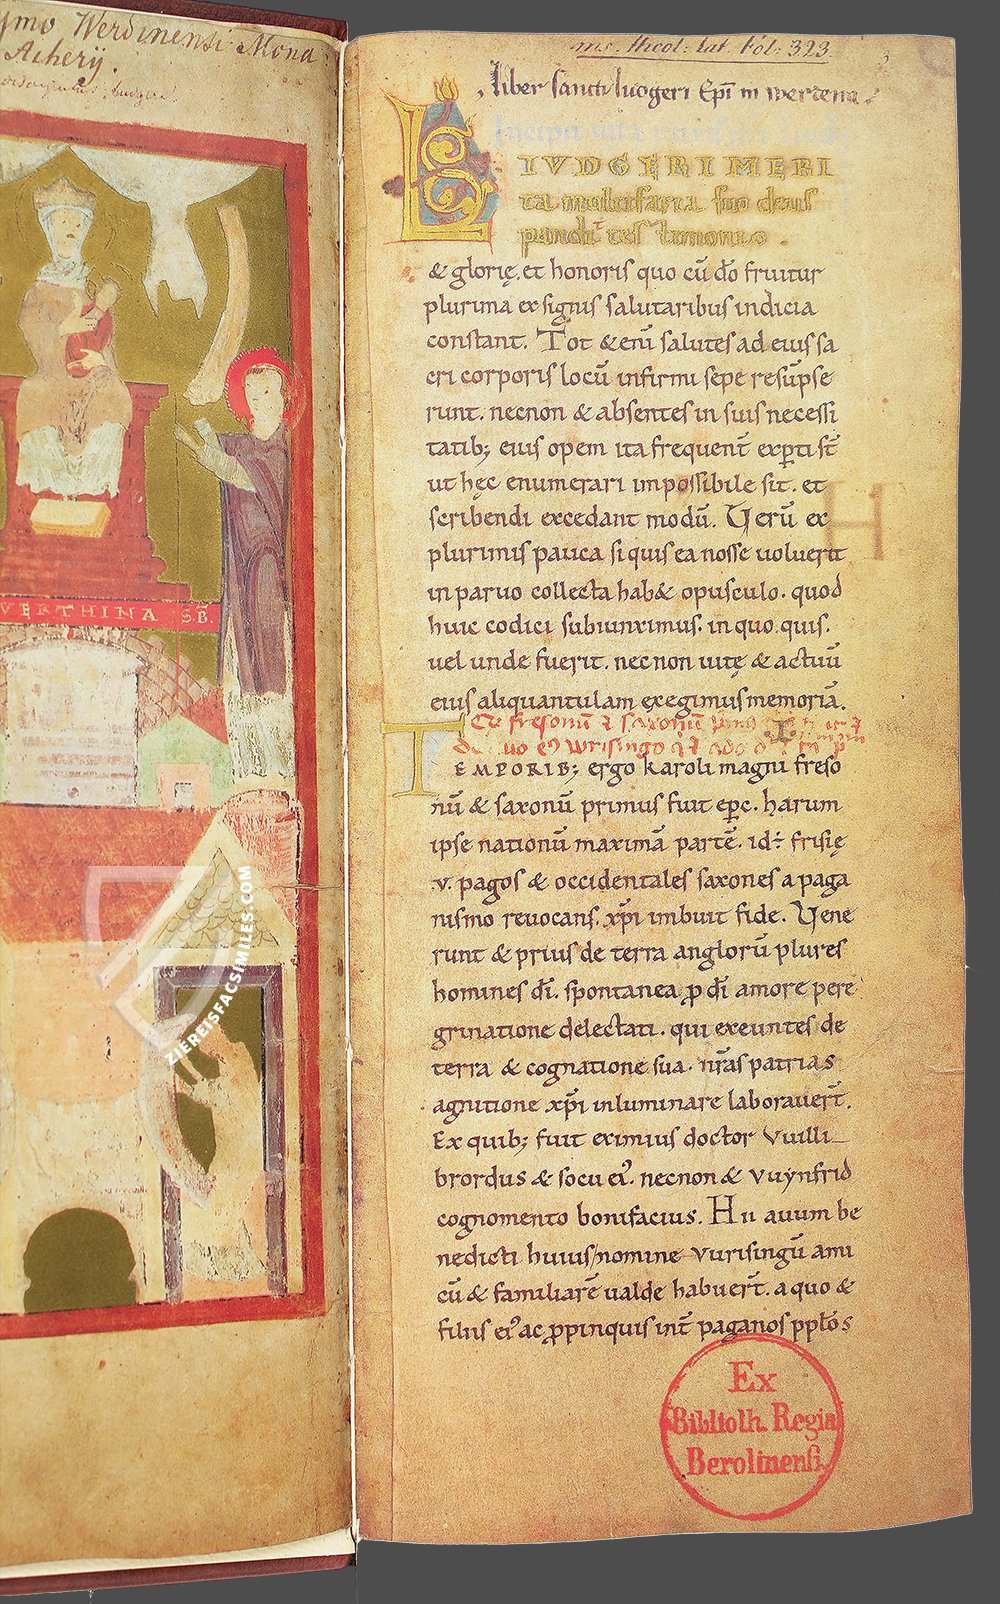 ymo Werdinensi Mona
Acherÿ.
VERTHINA S.B.
ms. theol: lat. fol: 323.
3
liber sancti luogeri Ep̅i in werdena.
LIVDGERI MERI
ta multifaria suo deus
pandit testimonio.
& glorię. et honoris quo cū d̅o fruitur
plurima ex signis salutaribus indicia
constant. Tot & eni̅ salutes ad eius sa
cri corporis locū infirmi sepe resūpse
runt. necnon & absentes in suis necessi
tatib; eius opem ita frequent̅ exp̱ti st̅
ut hęc enumerari impossibile sit. et
scribendi excedant modū. Verū ex
plurimis pauca si quis ea nosse uoluerit
in paruo collecta hab& opusculo. quod
huic codici subiunximus. in quo quis.
uel unde fuerit. necnon uitę & actuū
eius aliquantulam exegimus memoriā.
TEMPORIB; ergo karoli magni freso
nū & saxonū primus fuit ep̅c. harum
ipse nationū maximā partē. id÷ frisię
.v. pagos & occidentales saxones a paga
nismo reuocans. xp̅i imbuit fide. Vene
runt & prius de terra anglorū plures
homines d̅i. spontanea p̱ d̅i amore pere
grinatione delectati. qui exeuntes de
terra & cognatione sua. nr̅as patrias
agnitione xp̅i inluminare laborauer̅t.
Ex quib; fuit eximius doctor Vuilli
brordus & socii ei᾽. necnon & Vuynfrid
cognomento bonifacius. Hii auum be
nedicti huius nomine vurisingū ami
cū & familiarē ualde habuer̅t. a quo &
filiis ei᾽ ac p̱pinquis int̅ paganos
Ex
Biblioth. Regia
Berolinensi.
ZIEREISFACSIMILES.COM